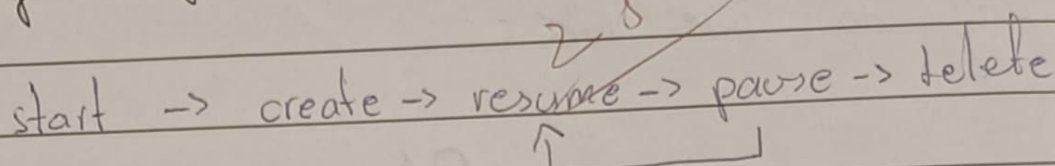 start -> create -> resume -> pause -> delete